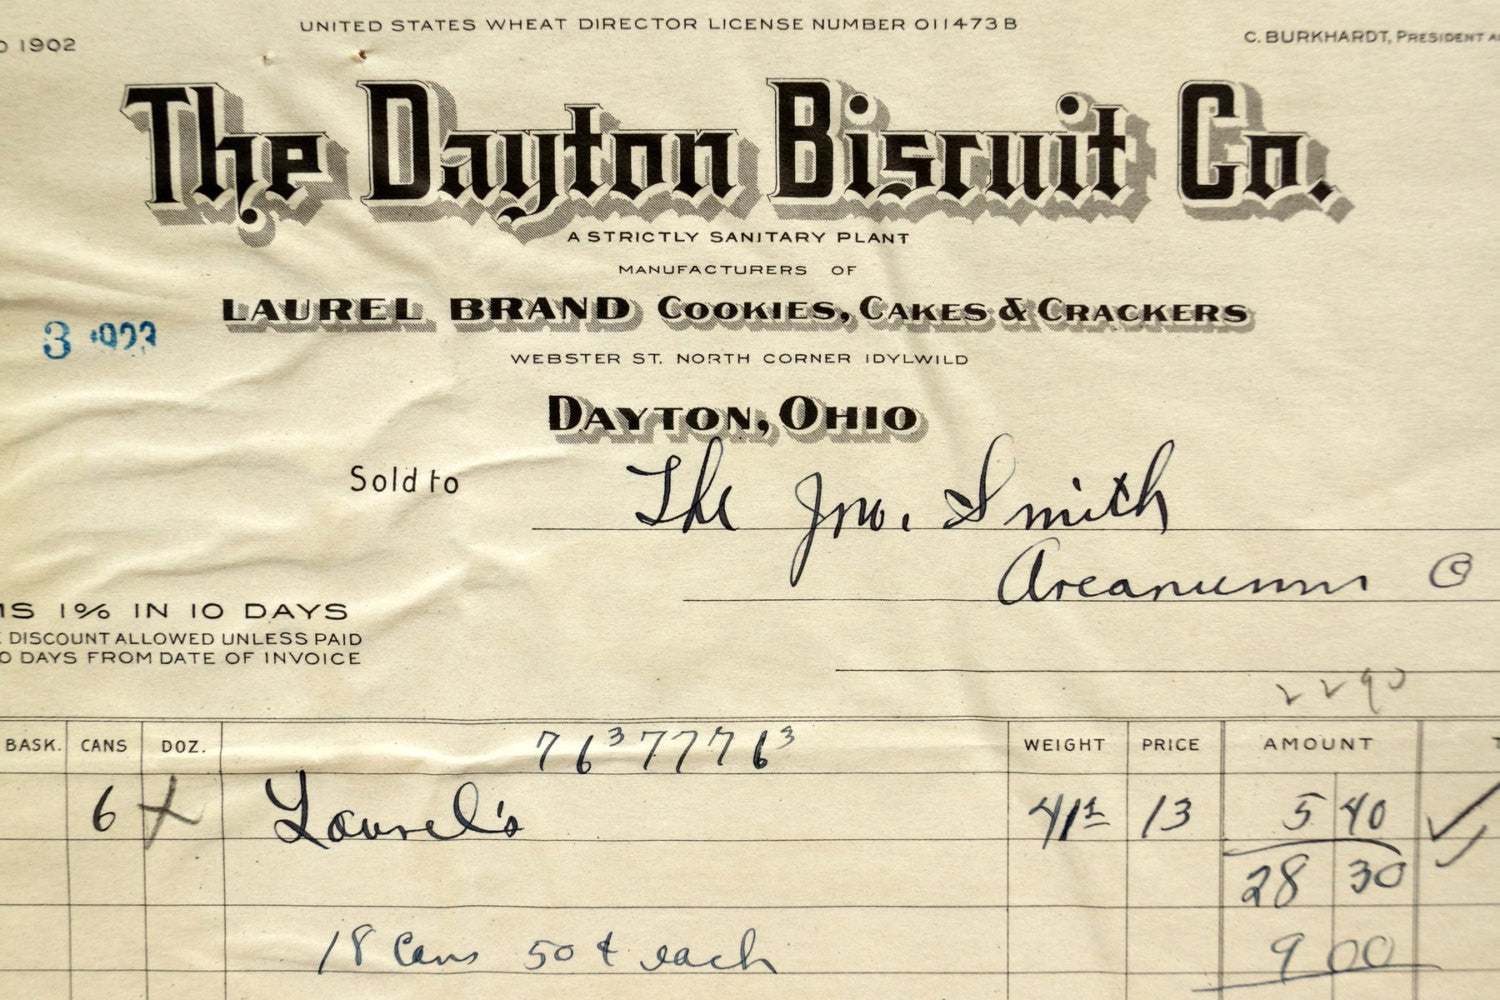 UNITED STATES WHEAT DIRECTOR LICENSE NUMBER 011473B
1902
C. BURKHARDT, PRESIDENT
The Dayton Biscuit Co.
A STRICTLY SANITARY PLANT
MANUFACTURERS OF
LAUREL BRAND COOKIES, CAKES & CRACKERS
3 1923
WEBSTER ST. NORTH CORNER IDYLWILD
DAYTON, OHIO
Sold to The Jno. Smith
Arcanum O
1% IN 10 DAYS
DISCOUNT ALLOWED UNLESS PAID
DAYS FROM DATE OF INVOICE
2290
BASK. CANS DOZ. 76³7776³ WEIGHT PRICE AMOUNT
6 Laurel's 41½ 13 5 40
28 30
18 Cans 50¢ each 9 00